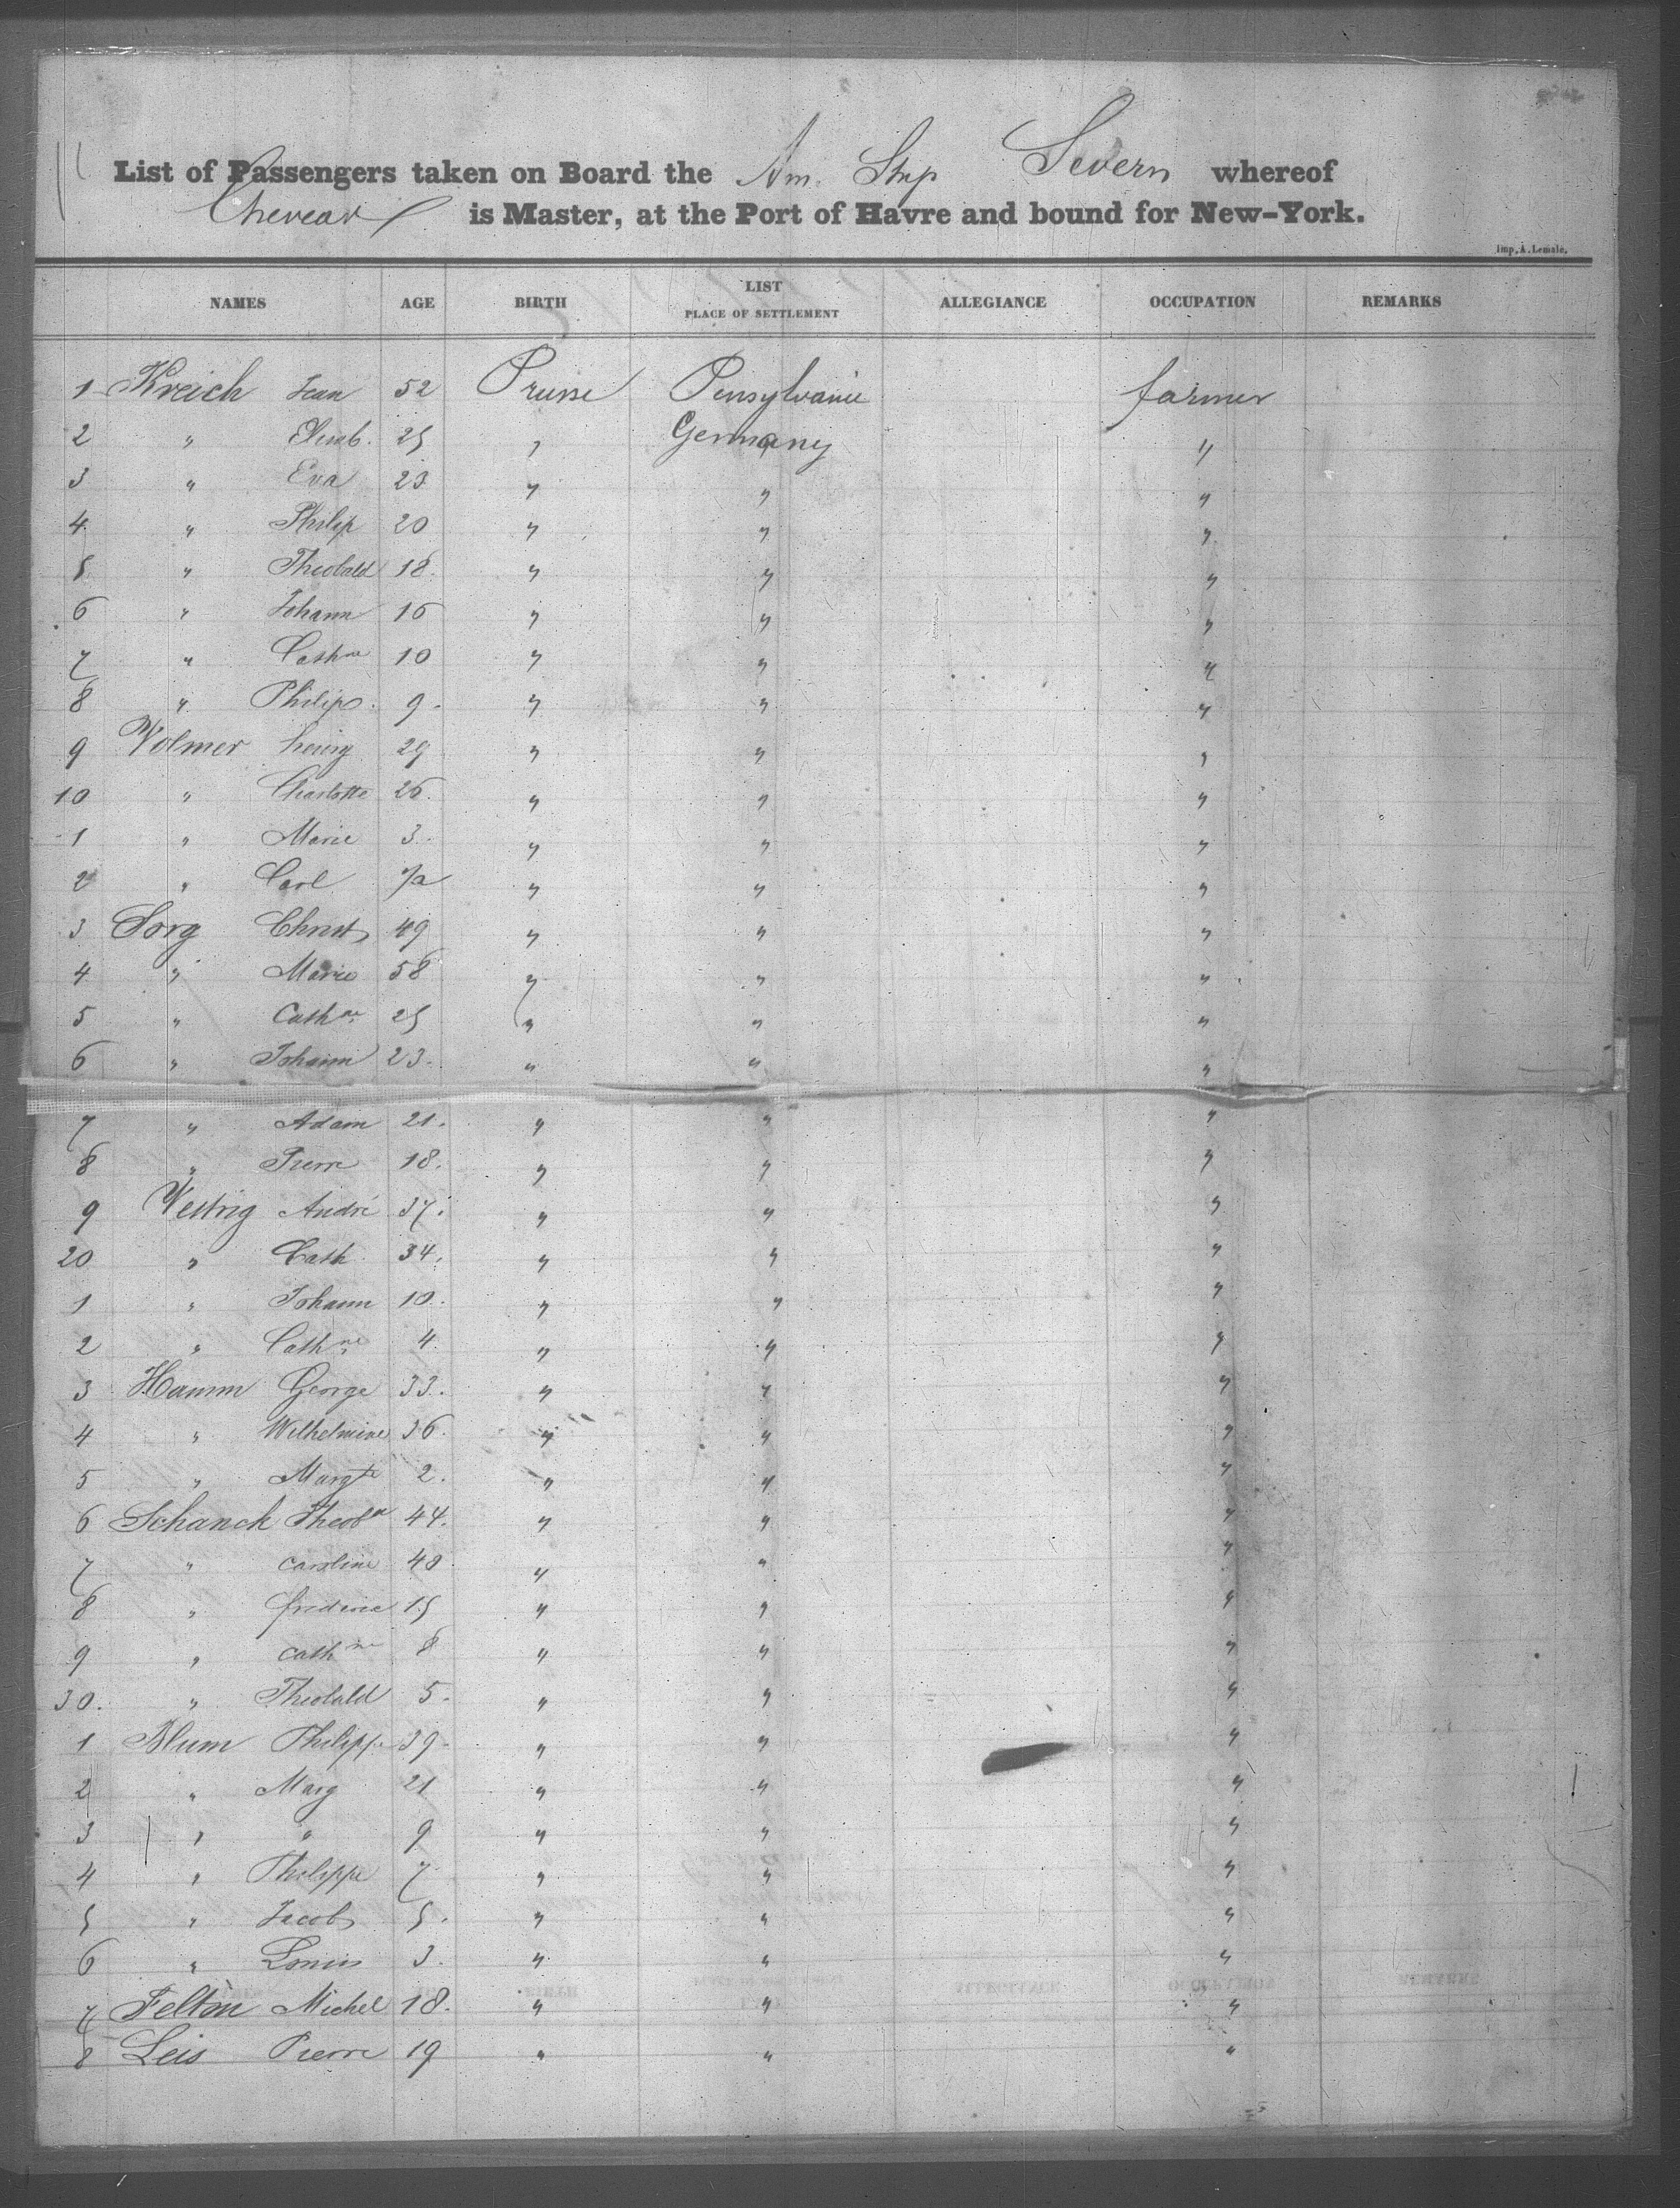 List of Passengers taken on Board the Am. Shp Severn whereof
is Master, at the Port of Havre and bound for New-York.
Imp. A. Lemale.
NAMES AGE BIRTH LIST PLACE OF SETTLEMENT ALLEGIANCE OCCUPATION REMARKS
1 Kreich Jean 52 Prusse Pensylvanie farmer
2 " Elisab. 25 " Germany "
3 " Eva 23 " " "
4 " Philip 20 " " "
5 " Theobald 18. " " "
6 " Johann 16 " " "
7 " Cathne 10 " " "
8 " Philip. 9. " " "
9 Volmer henry 29 " " "
10 " Charlotte 26. " " "
1 " Marie 3. " " "
2 " Carl " " "
3 Sorg Christ 49 " " "
4 " Marie 58 " " "
5 " Cathne 25 " " "
6 " Johann 23. " " "
7 " Adam 21. " " "
8 " Pierre 18. " " "
9 Vestrig André 37. " " "
20 " Cath. 34. " " "
1 " Johann 10. " " "
2 " Cathne 4. " " "
3 Hamm George 33. " " "
4 " Wilhelmine 36. " " "
5 " Margte 2. " " "
6 Schanck Theobd 44. " " "
7 " Caroline 40 " " "
8 " frederic 15 " " "
9 " Cathne 8 " " "
30. " Theobald 5. " " "
1 Blum Philippe 39. " " "
2 " Marg 21 " " "
3 " " 9 " " "
4 " Philippe 7 " " "
5 " Jacob 5. " " "
6 " Louis 3. " " "
7 Felton Michel 18. " " "
8 Leis Pierre 19 " " "